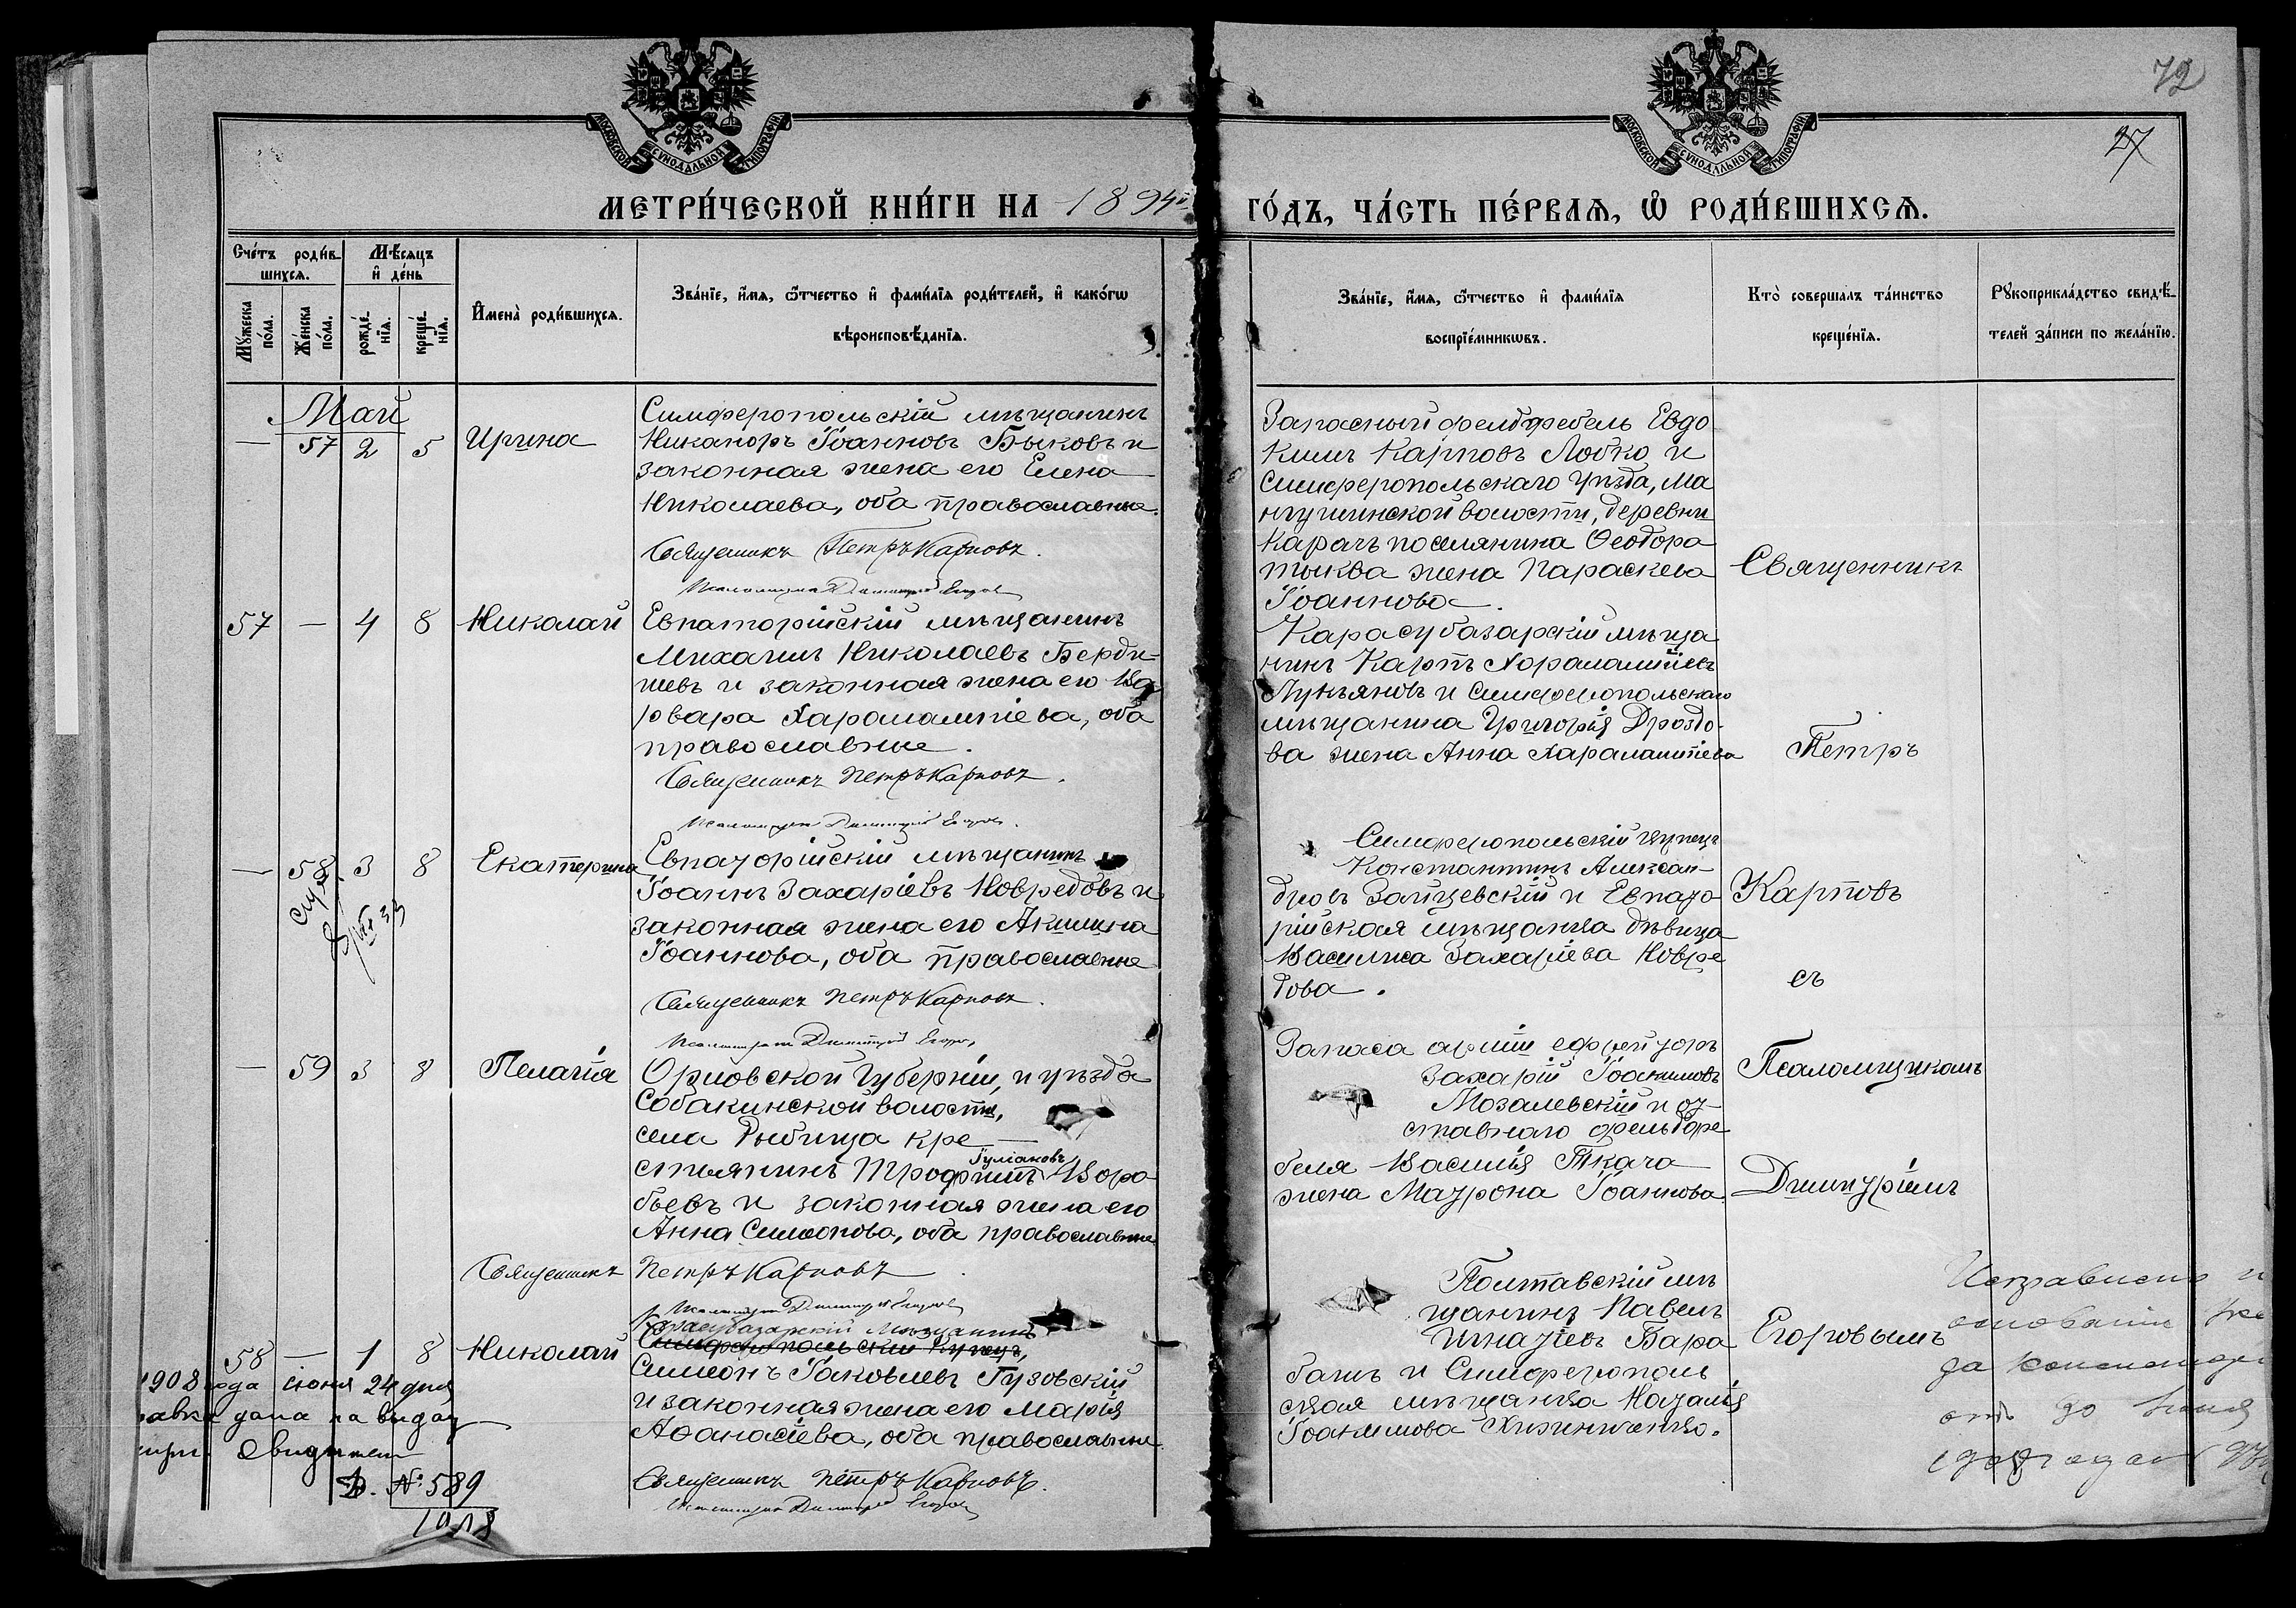 72
27
МОСКОВСКОЙ СѴНОДАЛЬНОЙ ТИПОГРАФІИ
МОСКОВСКОЙ СѴНОДАЛЬНОЙ ТИПОГРАФІИ
МЕТРИ́ЧЕСКОЙ КНИ́ГИ НА 1894й
ГО́ДЪ, ЧА́СТЬ ПЕ́РВАѦ, Ѡ҆ РОДИ́ВШИХСѦ.
Сче́тъ роди́вшихсѧ.
Мꙋ́жеска по́ла.
Же́нска по́ла.
Мѣ́сѧцъ и҆ де́нь
рожде́нїѧ.
креще́нїѧ.
И҆мена̀ роди́вшихсѧ.
Зва́нїе, и҆́мѧ, ѻ҆́тчество и҆ фами́лїѧ роди́телей, и҆ како́гѡ
вѣроисповѣ́данїѧ.
Зва́нїе, и҆́мѧ, ѻ҆́тчество и҆ фами́лїѧ
воспрїе́мникѡвъ.
Кто̀ совершалъ та́инство
креще́нїѧ.
Рꙋкоприкла́дство свидѣ́-
телей за́писи по жела́нїю.
Май
— 57 2 5 Ирина
Симферопольскій мѣщанинъ
Никаноръ Іоанновъ Быковъ и
законная жена его Елена
Николаева, оба православные.
Священникъ Петръ Карповъ.
Псаломщикъ Димитрій Егоровъ
Запасный фельдфебель Евдо
кимъ Карповъ Лобко и
Симферопольскаго уѣзда, Ма
нгушинской волости, деревни
Карачъ поселянина Ѳеодора
Тыква жена Параскева
Іоаннова.
57 — 4 8 Николай
Евпаторійскій мѣщанинъ
Михаилъ Николаевъ Берды-
шевъ и законная жена его Ва
рвара Харалампіева, оба
православные.
Священникъ Петръ Карповъ.
Псаломщикъ Димитрій Егоровъ.
Карасубазарскій мѣща
нинъ Карпъ Харалампіевъ
Лукьяновъ и Симферопольскаго
мѣщанина Григорія Дроздо-
ва жена Анна Харалампіева
— 58 3 8 Екатерина
Евпаторійскій мѣщанинъ
Іоаннъ Захаріевъ Новредовъ и
законная жена его Акилина
Іоаннова, оба православные
Священникъ Петръ Карповъ.
Псаломщикъ Димитрій Егоровъ
Симферопольскій купецъ
Константинъ Алексан-
дровъ Зайцевскій и Евпато
рійская мѣщанка дѣвица
Василиса Захаріева Новре
дова.
— 59 3 8 Пелагія
Орловской Губерніи, и уѣзда
Собакинской волости,
села Рыбница кре—
стьянинъ Трофимъ Гулаковъ Воро
бьевъ и законная жена его
Анна Симеонова, оба православные
Священникъ Петръ Карповъ.
Псаломщикъ Димитрій Егоровъ
Запаса арміи ефрейторъ
Захарій Іоакимовъ
Мозалевскій и от-
ставнаго фельдфе
беля Василія Ткача
жена Матрона Іоаннова.
58 — 1 8 Николай
Карасубазарскій мѣщанинъ
Симферопольскій купецъ,
Симеонъ Іаковлевъ Гузовскій
и законная жена его Марія
Аѳанасіева, оба православные.
Священникъ Петръ Карповъ.
Псаломщикъ Димитрій Егоровъ
Полтавскій мѣ
щанинъ Павелъ
Игнатіевъ Бара
башъ и Симферополь
ская мѣщанка Наталія
Іоакимова Хижниченко.
Священникъ
Петръ
Карповъ
съ
Псаломщикомъ
Димитріемъ
Егоровымъ
1908 года іюня 24 дня
дана на выдачу
№ 589
1918